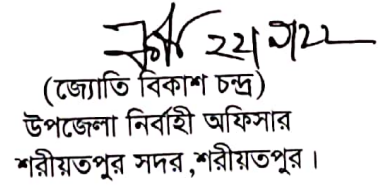 (জ্যোতি বিকাশ চন্দ্র)
উপজেলা নির্বাহী অফিসার
শরীয়তপুর সদর,শরীয়তপুর।